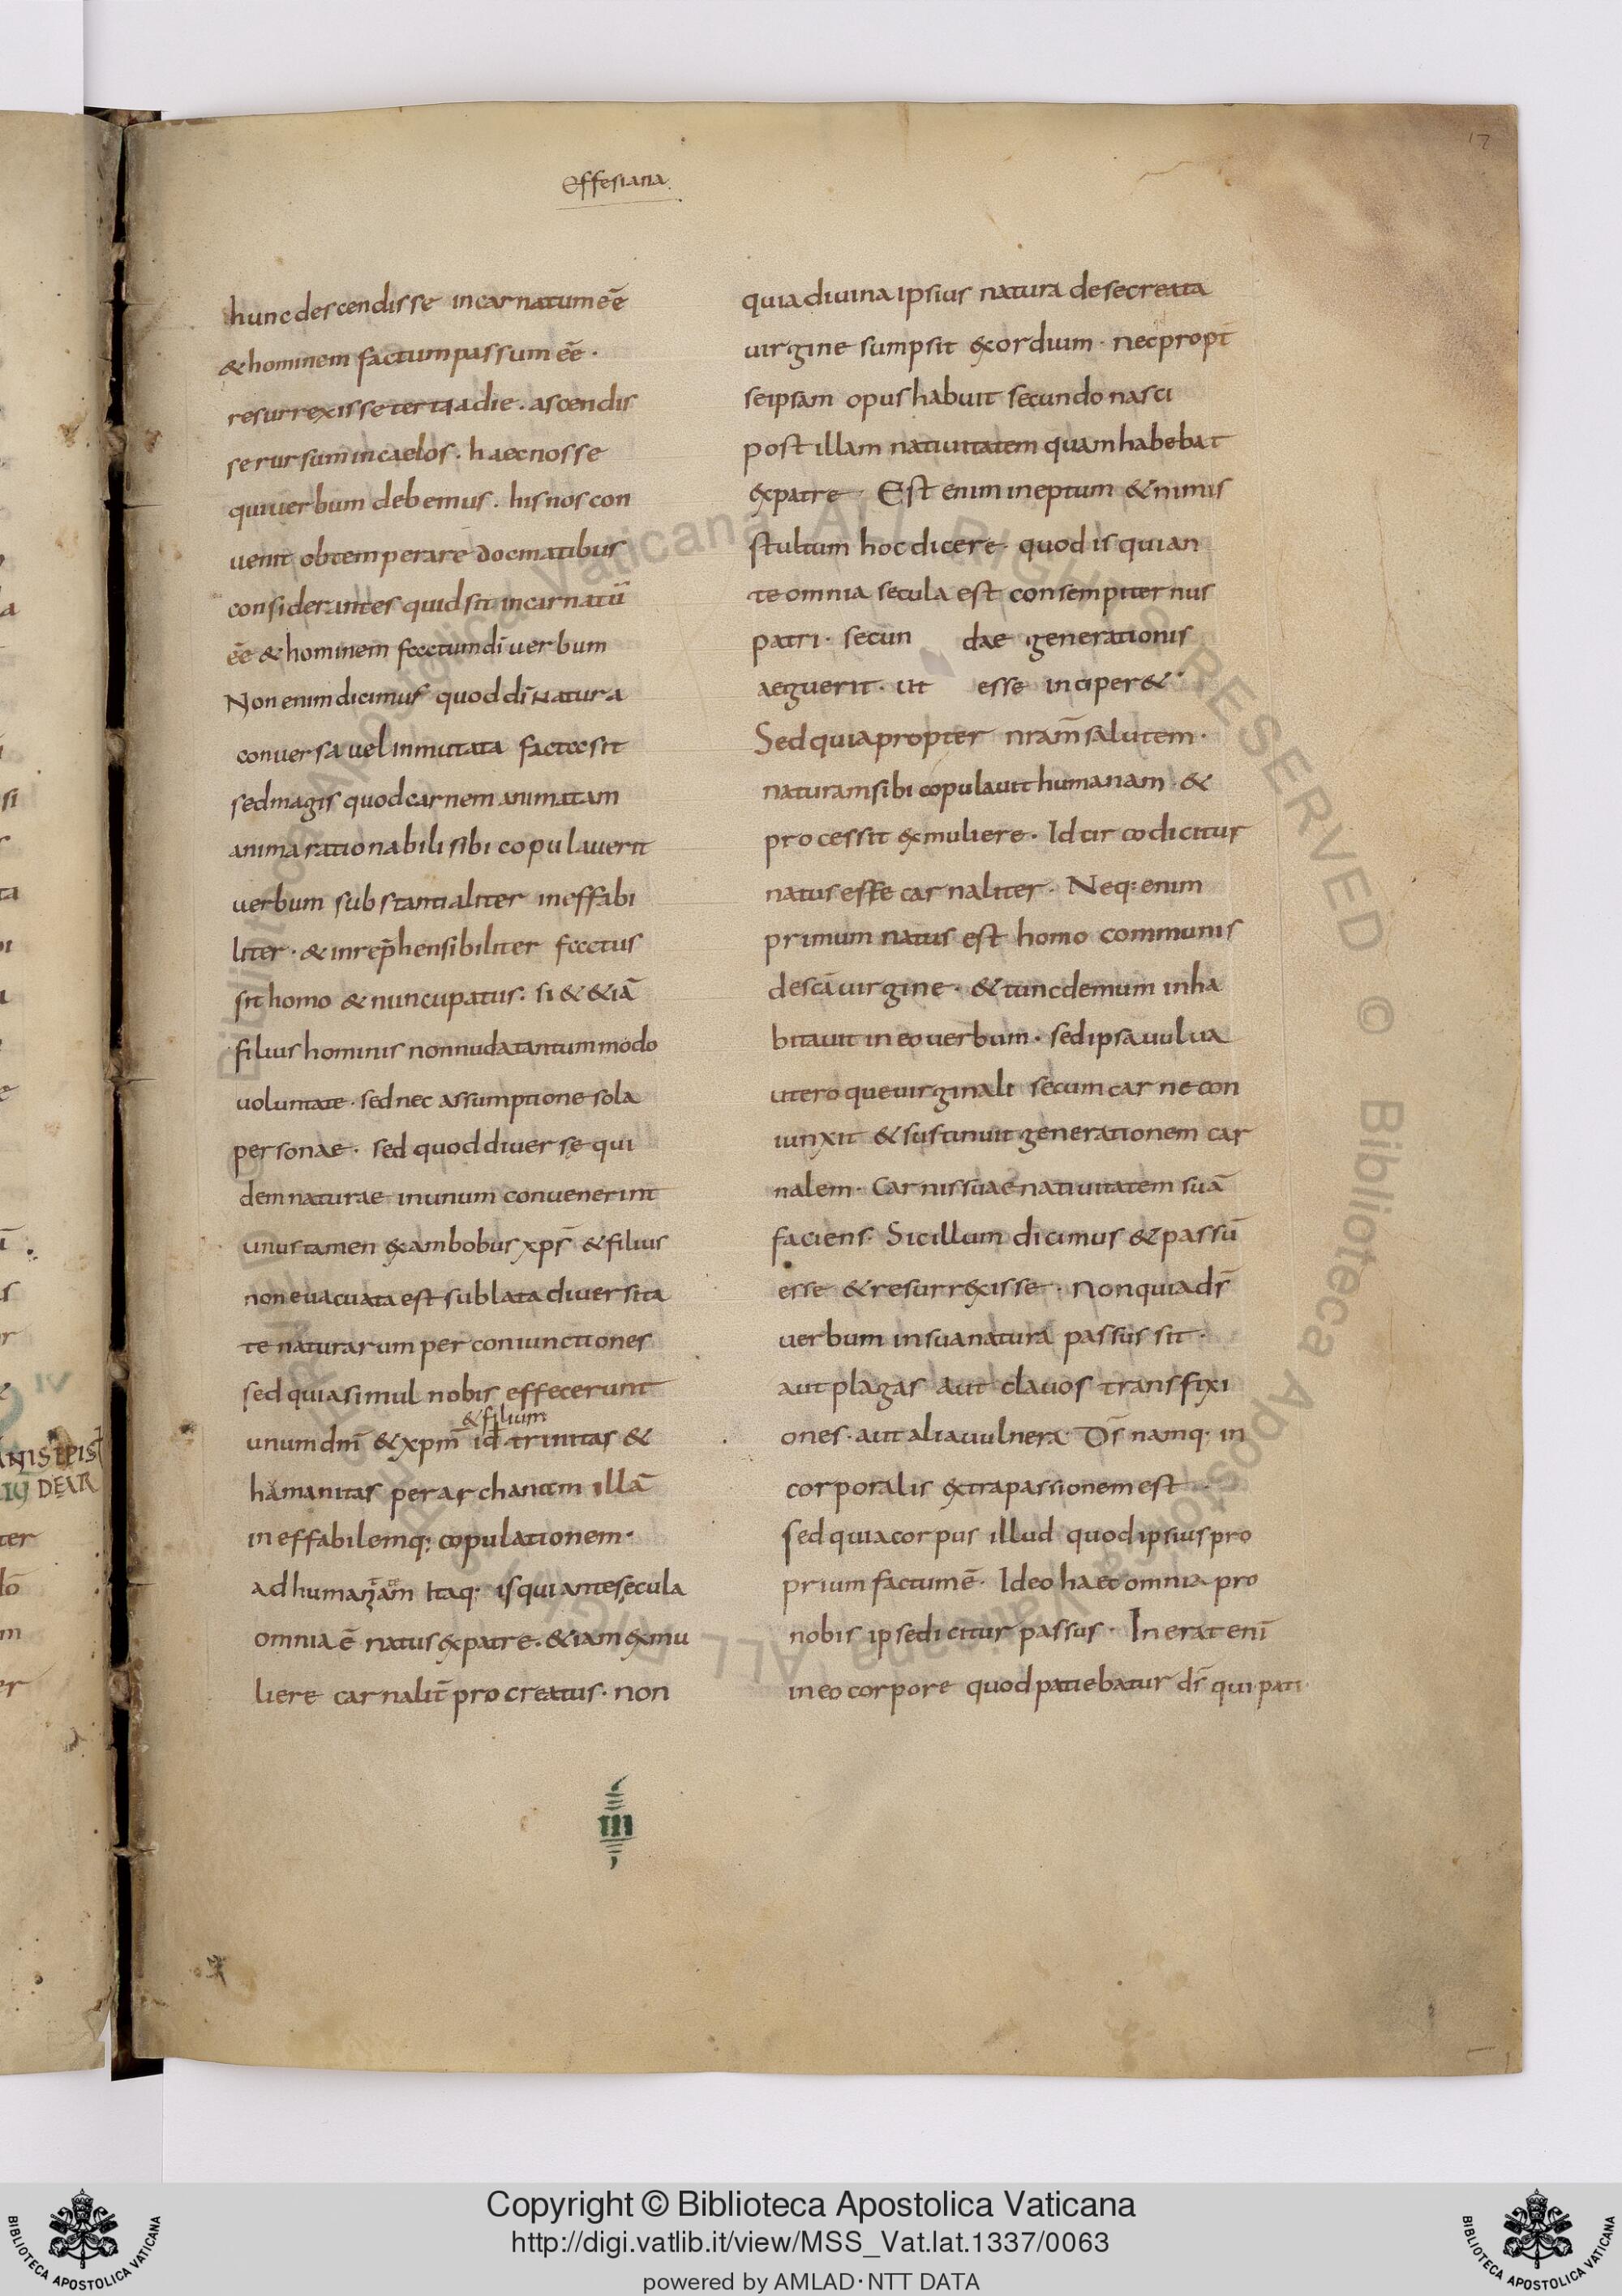 17
Effesiana
hunc descendisse incarnatum eē
& hominem factum passum eē·
resurrexisse tertia die. ascendis
se rursum in caelos. haec nosse
qui uerbum debemus. his nos con
uenit obtemperare docmatibus
considerantes quid sit incarnatū
eē & hominem factum dī uerbum
Non enim dicimus quod dī natura
conuersa uel inmutata facta sit
sed magis quod carnem animatam
anima rationabili sibi copulauerit
uerbum substantialiter ineffabi
liter· & inrep̄hensibiliter factus
sit homo & nuncupatus. si & &iā
filius hominis non nuda tantum modo
uoluntate· sed nec assumptione sola
personae· sed quod diuersę qui
dem naturae in unum conuenerint
unus tamen ex ambobus xp̄s & filius
non euacuata est sublata diuersita
te naturarum per coniunctiones
sed quia simul nobis effecerunt
& filium
unum dnī & xpm̄ id trinitas &
hamanitas per archanam illā
ineffabilemq; copulationem·
ad humanam Itaq· is qui ante secula
omnia ē natus ex patre. &iam ex mu
liere carnalit̄ procreatus· non
quia diuina ipsius natura de secretta
uirgine sumpsit exordium· nec propt̄
seipsam opus habuit secundo nasci
post illam natiuitatem quam habebat
ex patre· Est enim ineptum & nimis
stultum hoc dicere· quod is qui an
te omnia secula est consempiternus
patri· secun dae generationis
aeguerit· ut esse inciper&·
Sed quia propter nram̄ salutem·
naturam sibi copulauit humanam· &
processit ex muliere· Idcirco dicitur
natus esse carnaliter· Neq; enim
primum natus est homo communis
de scā uirgine· & tunc demum inha
bitauit in eo uerbum· sed ipsa uulua
utero que uirginali secum carne con
iunxit & sustinuit generationem car
nalem· Carnis suae natiuitatem suā
faciens· Sic illum dicimus & passū
esse & resurrexisse· Non quia ds̄
uerbum in sua natura passus sit·
aut plagas aut clauos transfixi
ones· aut alia uulnera· Ds̄ namq· in
corporalis extra passionem est
sed quia corpus illud quod ipsius pro
prium factum ē· Ideo haec omnia pro
nobis ipse dicitur passus· Inerat enī
in eo corpore quod patiebatur ds̄ qui pati
III
Copyright © Biblioteca Apostolica Vaticana
http://digi.vatlib.it/view/MSS_Vat.lat.1337/0063
powered by AMLAD·NTT DATA
BIBLIOTECA APOSTOLICA VATICANA
BIBLIOTECA APOSTOLICA VATICANA